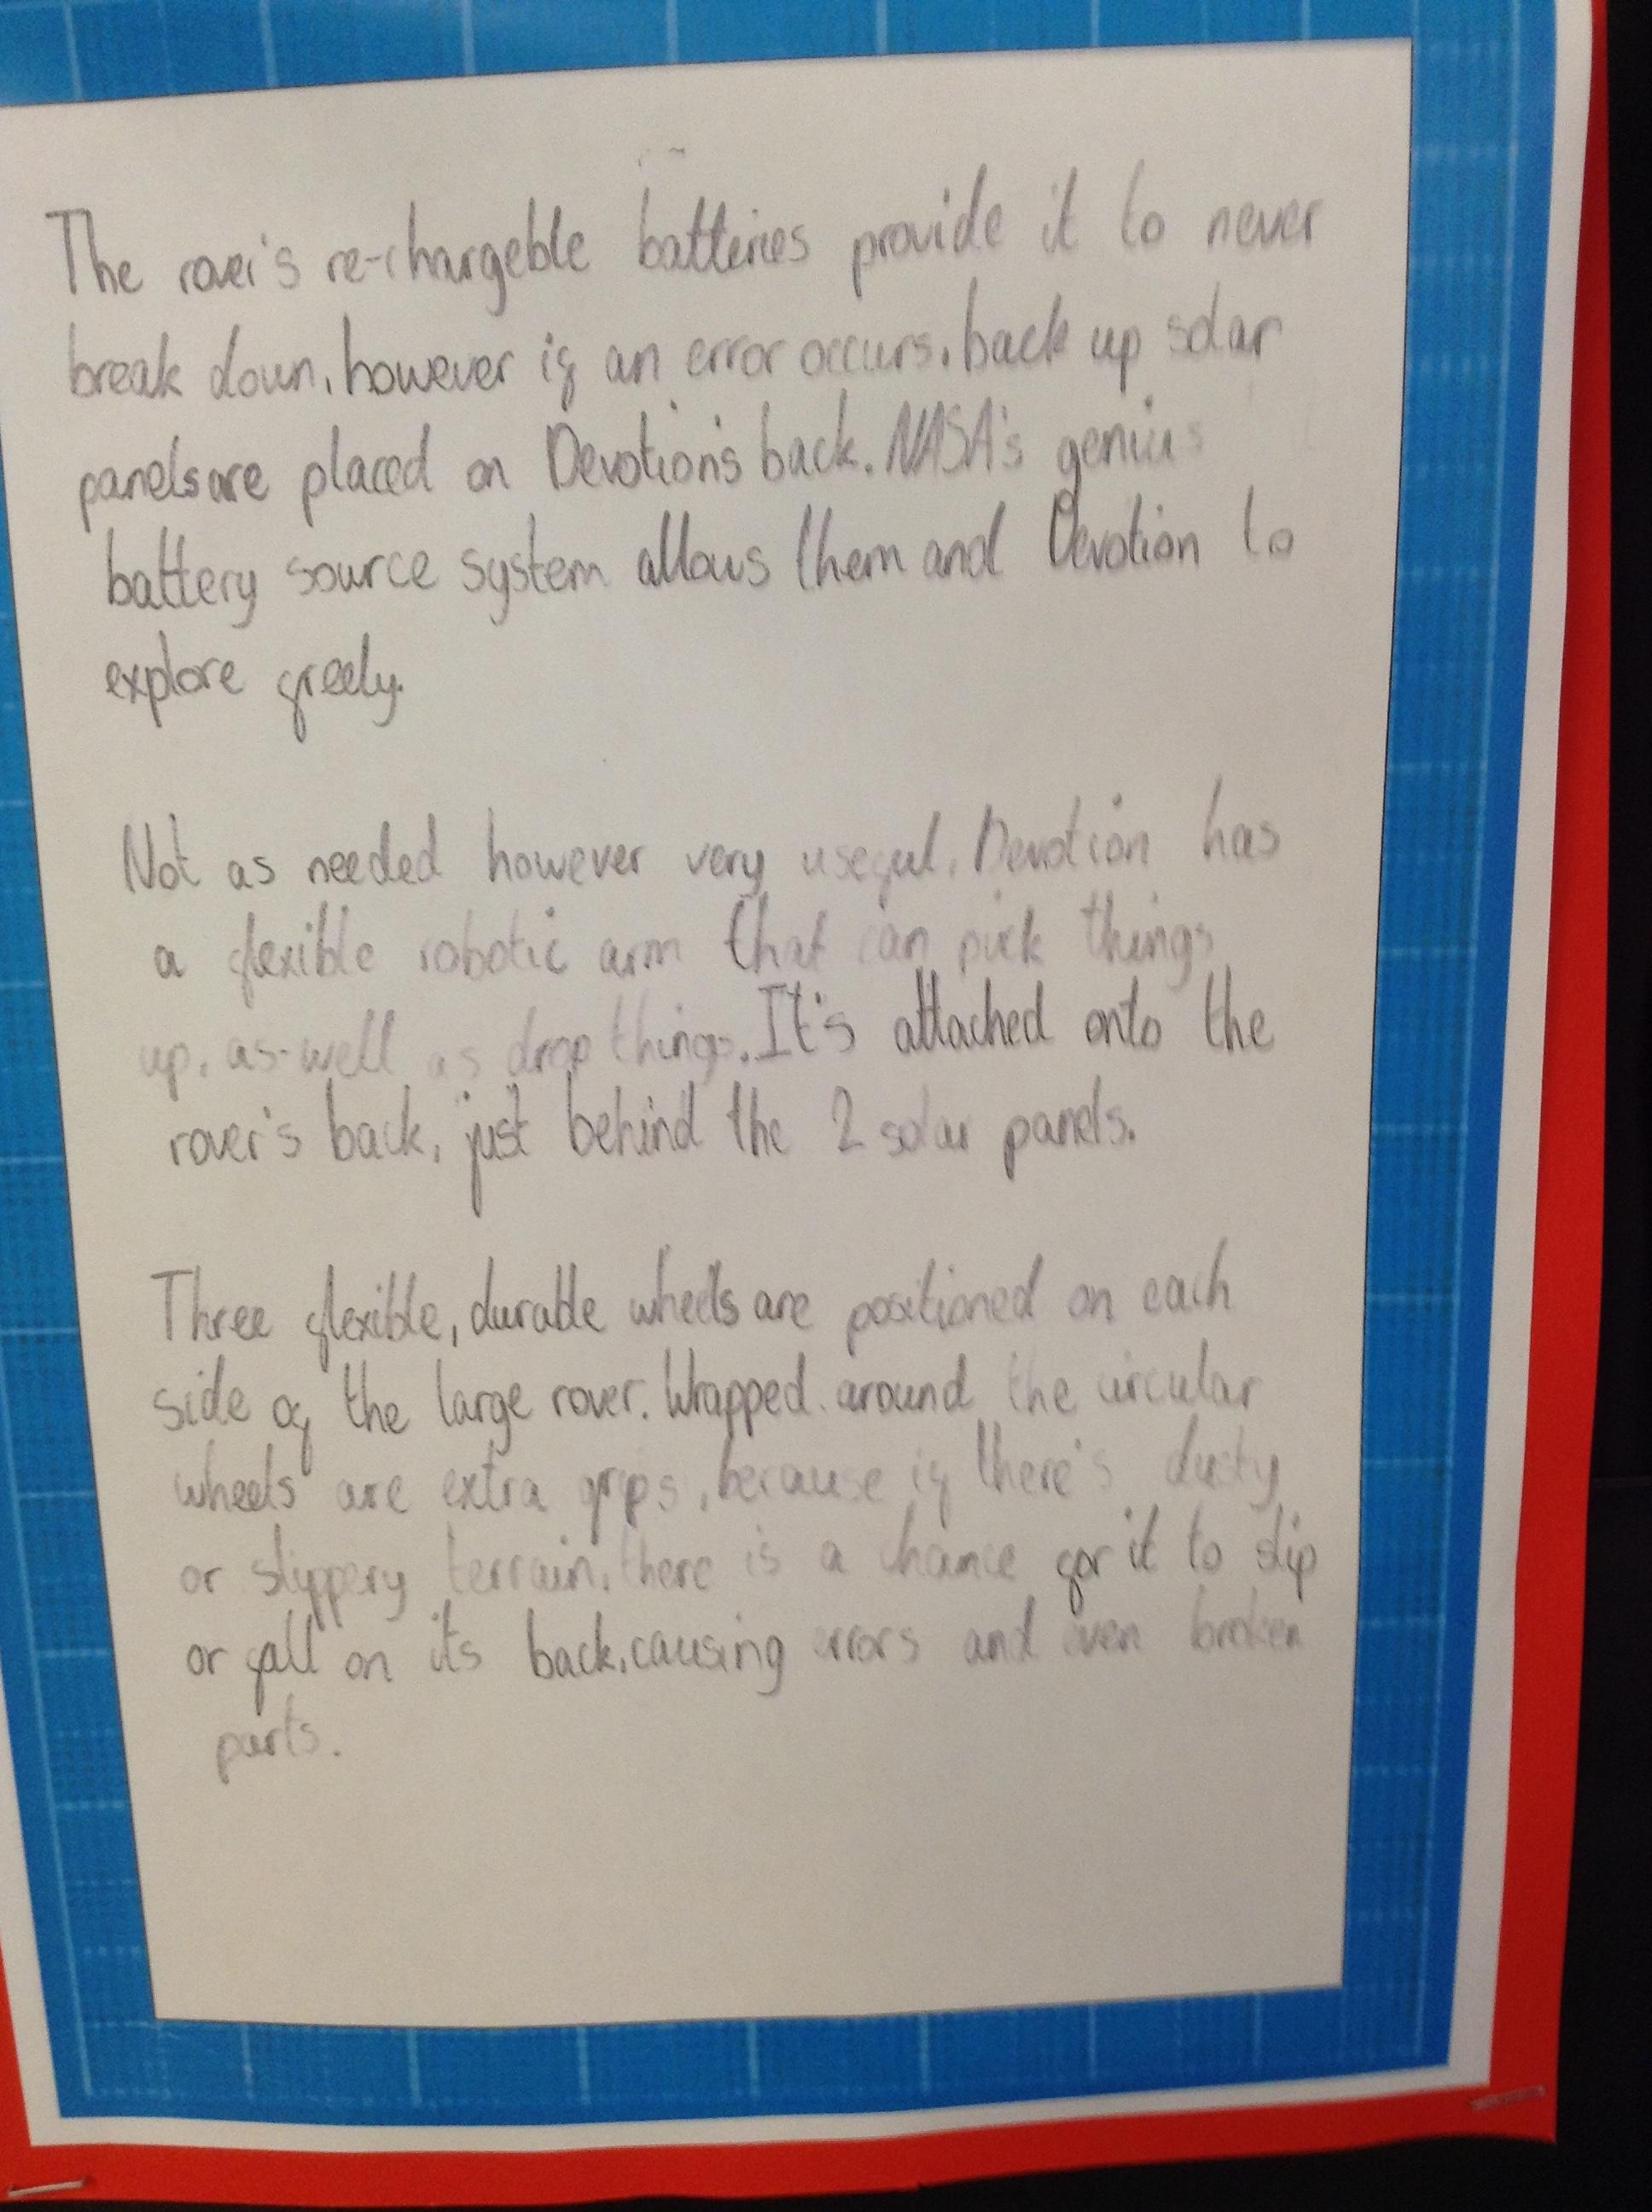 The rover's re-chargeble batteries provide it to never
break down, however if an error occurs, back up solar
panels are placed on Devotion's back. NASA's genius
battery source system allows them and Devotion to
explore freely.
Not as needed however very useful, Devotion has
a flexible robotic arm that can pick things
up, as-well as drop things. It's attached onto the
rover's back, just behind the 2 solar panels.
Three flexible, durable wheels are positioned on each
side of the large rover. Wrapped around the circular
wheels are extra grips, because if there's dusty
or slippery terrain, there is a chance for it to slip
or fall on its back, causing errors and even broken
parts.